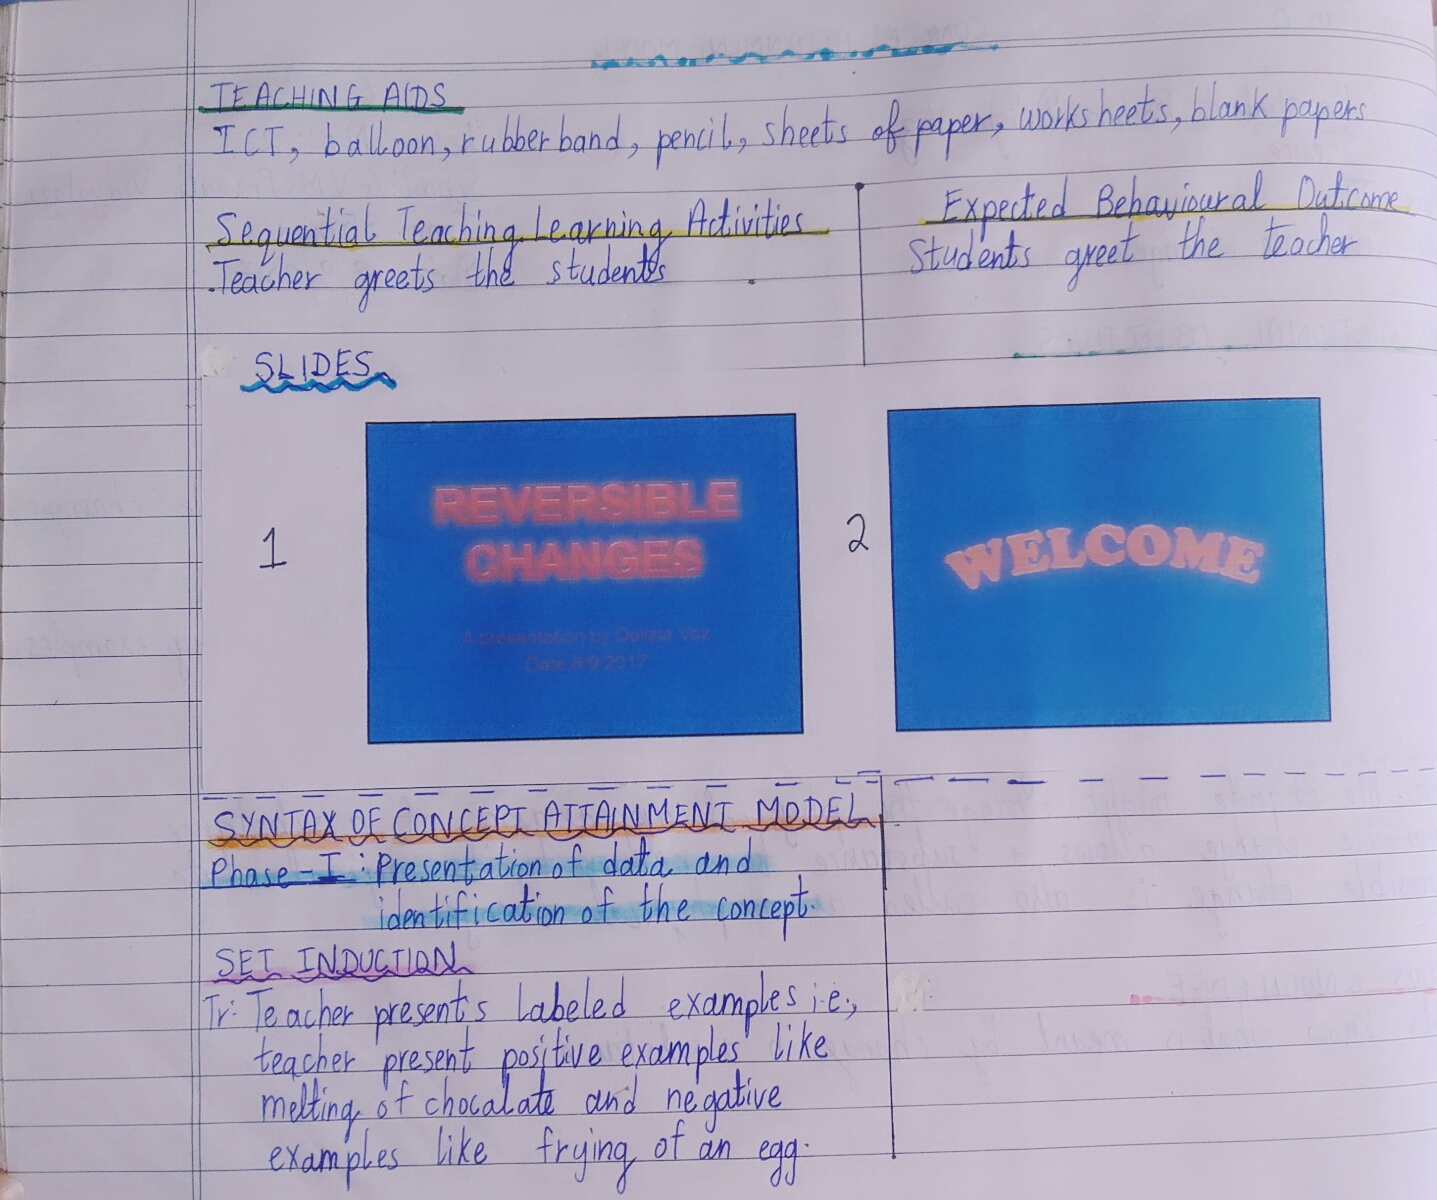 TEACHING AIDS
ICT, balloon, rubber band, pencil, sheets of paper, worksheets, blank papers
Sequential Teaching Learning Activities
Teacher greets the students
Expected Behavioural Outcome
Students greet the teacher
SLIDES
1
REVERSIBLE
CHANGES
A presentation by Delizia Vaz
Date 8/9/2017
2
WELCOME
SYNTAX OF CONCEPT ATTAINMENT MODEL
Phase-I: Presentation of data and
identification of the concept.
SET INDUCTION
Tr: Teacher presents labeled examples i.e.,
teacher present positive examples like
melting of chocalate and negative
examples like frying of an egg.